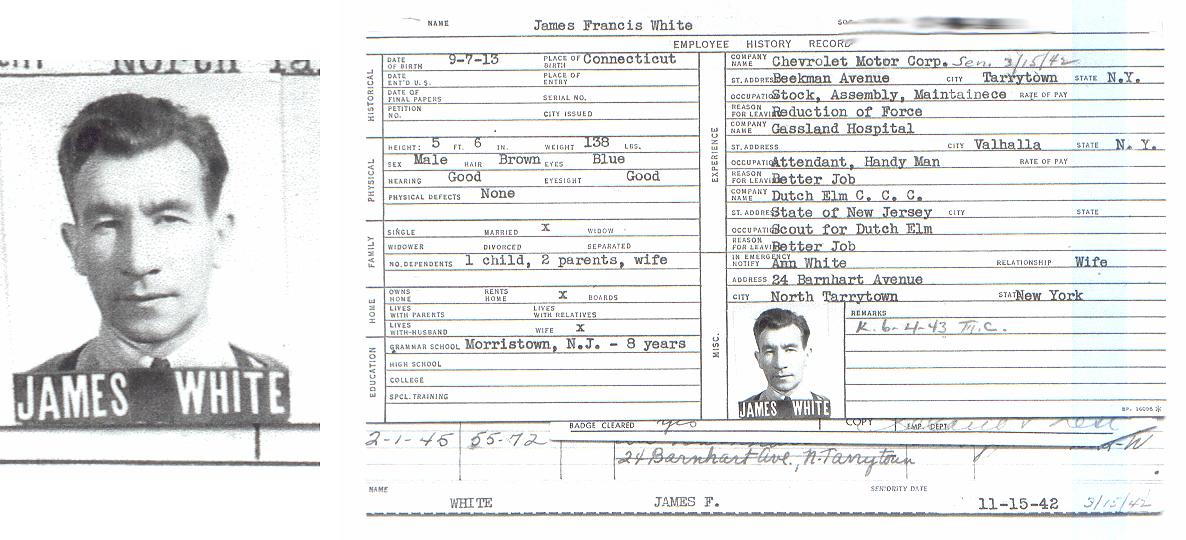 North Ta
JAMES WHITE
NAME James Francis White
EMPLOYEE HISTORY RECORD
HISTORICAL
DATE OF BIRTH 9-7-13 PLACE OF BIRTH Connecticut
DATE ENT'D U.S. PLACE OF ENTRY
DATE OF FINAL PAPERS SERIAL NO.
PETITION NO. CITY ISSUED
PHYSICAL
HEIGHT: 5 FT. 6 IN. WEIGHT 138 LBS.
SEX Male HAIR Brown EYES Blue
HEARING Good EYESIGHT Good
PHYSICAL DEFECTS None
FAMILY
SINGLE MARRIED X WIDOW
WIDOWER DIVORCED SEPARATED
NO. DEPENDENTS 1 child, 2 parents, wife
HOME
OWNS HOME RENTS HOME X BOARDS
LIVES WITH PARENTS LIVES WITH RELATIVES
LIVES WITH-HUSBAND WIFE X
EDUCATION
GRAMMAR SCHOOL Morristown, N.J. - 8 years
HIGH SCHOOL
COLLEGE
SPCL. TRAINING
EXPERIENCE
COMPANY NAME Chevrolet Motor Corp. Sen. 3/15/42
ST. ADDRESS Beekman Avenue CITY Tarrytown STATE N.Y.
OCCUPATIO Stock, Assembly, Maintainece RATE OF PAY
REASON FOR LEAVI Reduction of Force
COMPANY NAME Gassland Hospital
ST. ADDRESS CITY Valhalla STATE N. Y.
OCCUPATIO Attendant, Handy Man RATE OF PAY
REASON FOR LEAVI Better Job
COMPANY NAME Dutch Elm C. C. C.
ST. ADDRE State of New Jersey CITY STATE
OCCUPATIO Scout for Dutch Elm
REASON FOR LEAVI Better Job
MISC.
IN EMERGENCY NOTIFY Ann White RELATIONSHIP Wife
ADDRESS 24 Barnhart Avenue
CITY North Tarrytown STAT New York
REMARKS
R. 6-4-43 M.C.
JAMES WHITE
BP. 16008
BADGE CLEARED yes COPY EMP. DEPT.
2-1-45 55-72
24 Barnhart Ave., N. Tarrytown
NAME SENIORITY DATE
WHITE JAMES F. 11-15-42 3/15/42